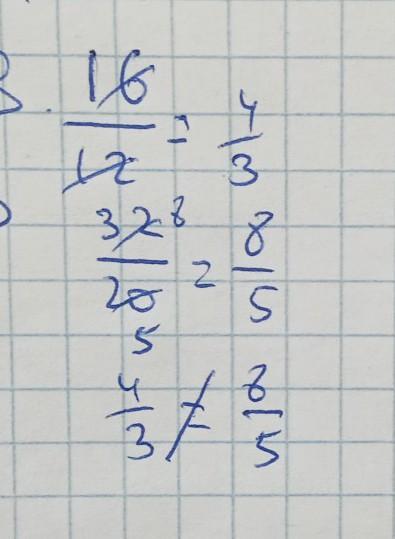 3. 16/12 = 4/3
32/20 = 8/5
8
5
4/3 ≠ 8/5